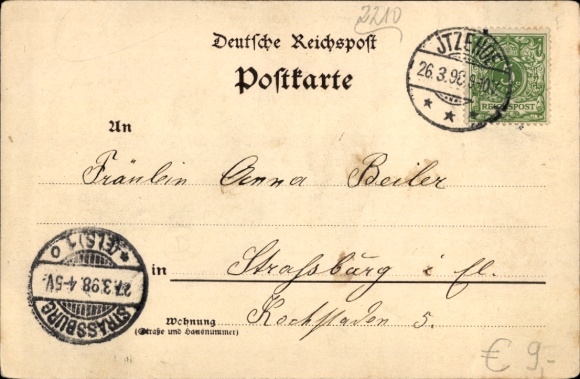 2210
Deutsche Reichspost
Postkarte
JTZEHOE
26.3.98
REICHSPOST
An
Fräulein Anna Beiler
STRASSBURG
*(ELS)1 o
27.3.98.4-5V.
in Strassburg i. El.
Wohnung
(Straße und Hausnummer)
Kochstaden 5.
€ 9,-